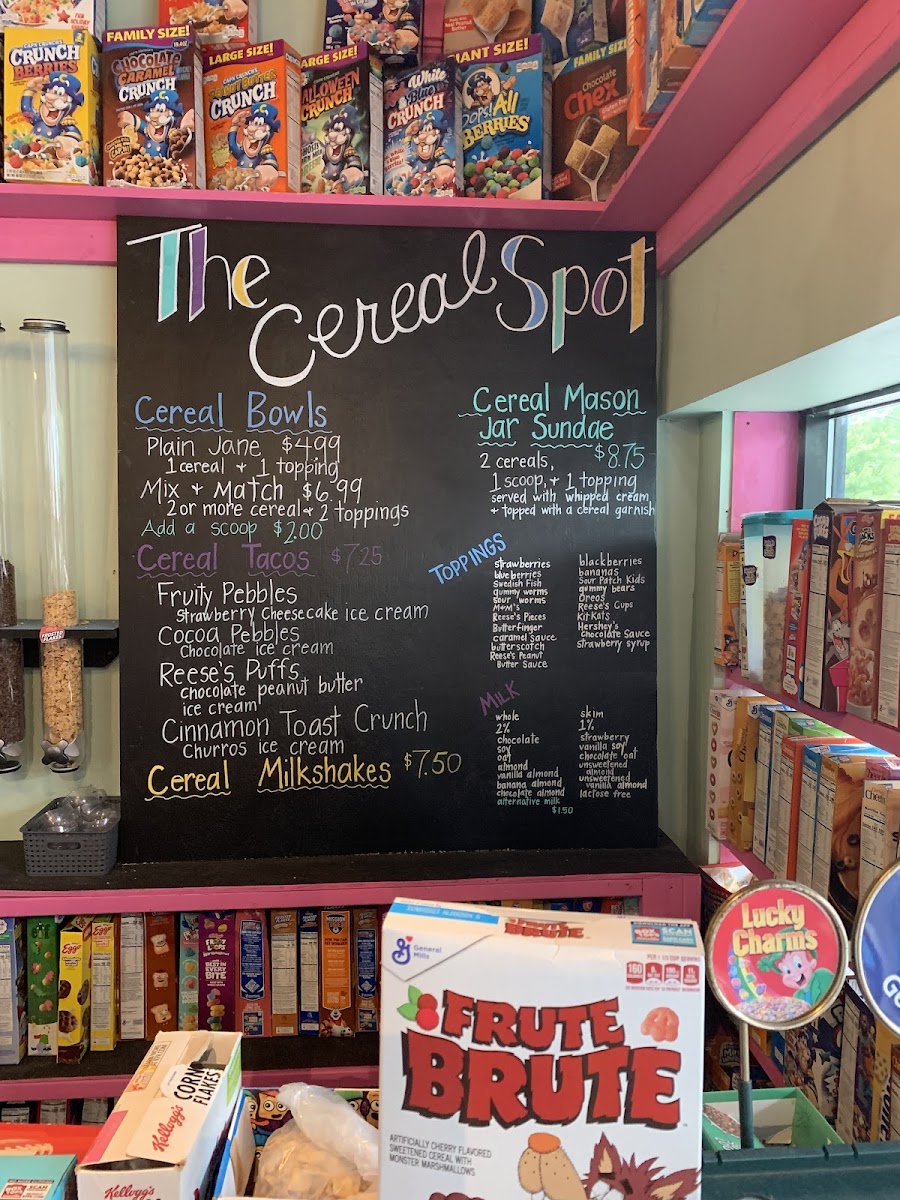 CAP'N CRUNCH'S
CRUNCH
BERRIES
FAMILY SIZE!
CHOCOLATE
CARAMEL
CRUNCH
LARGE SIZE!
CAP'N CRUNCH'S
PEANUT BUTTER
CRUNCH
LARGE SIZE!
HALLOWEEN
CRUNCH
White
& Blue
CRUNCH
GIANT SIZE!
CAP'N CRUNCH'S
Oops! All
BERRIES
FAMILY SIZE
Chocolate
Chex
The
Cereal
Spot
Cereal Bowls
Plain Jane $4.99
1 cereal + 1 topping
Mix + Match $6.99
2 or more cereal + 2 toppings
Add a scoop $2.00
Cereal Tacos $7.25
Fruity Pebbles
Strawberry Cheesecake ice cream
Cocoa Pebbles
Chocolate ice cream
Reese's Puffs
chocolate peanut butter
ice cream
Cinnamon Toast Crunch
Churros ice cream
Cereal Milkshakes $7.50
Cereal Mason
Jar Sundae
$8.75
2 cereals,
1 scoop, + 1 topping
served with whipped cream
+ topped with a cereal garnish
TOPPINGS
strawberries
blueberries
Swedish Fish
gummy worms
sour worms
M&M's
Reese's Pieces
Butterfinger
caramel sauce
butterscotch
Reese's Peanut
Butter Sauce
blackberries
bananas
Sour Patch Kids
gummy bears
Oreos
Reese's Cups
KitKats
Hershey's
Chocolate Sauce
Strawberry syrup
MILK
whole
2%
chocolate
soy
oat
almond
vanilla almond
banana almond
chocolate almond
alternative milk
$1.50
skim
1%
strawberry
vanilla soy
chocolate oat
unsweetened
almond
unsweetened
vanilla almond
lactose free
FROSTED
FLAKES
Eggo
General
Mills
FRUTE
BRUTE
SCAN
160
FRUTE
BRUTE
ARTIFICIALLY CHERRY FLAVORED
SWEETENED CEREAL WITH
MONSTER MARSHMALLOWS
Kellogg's
CORN
FLAKES
Kellogg's
Lucky
Charms